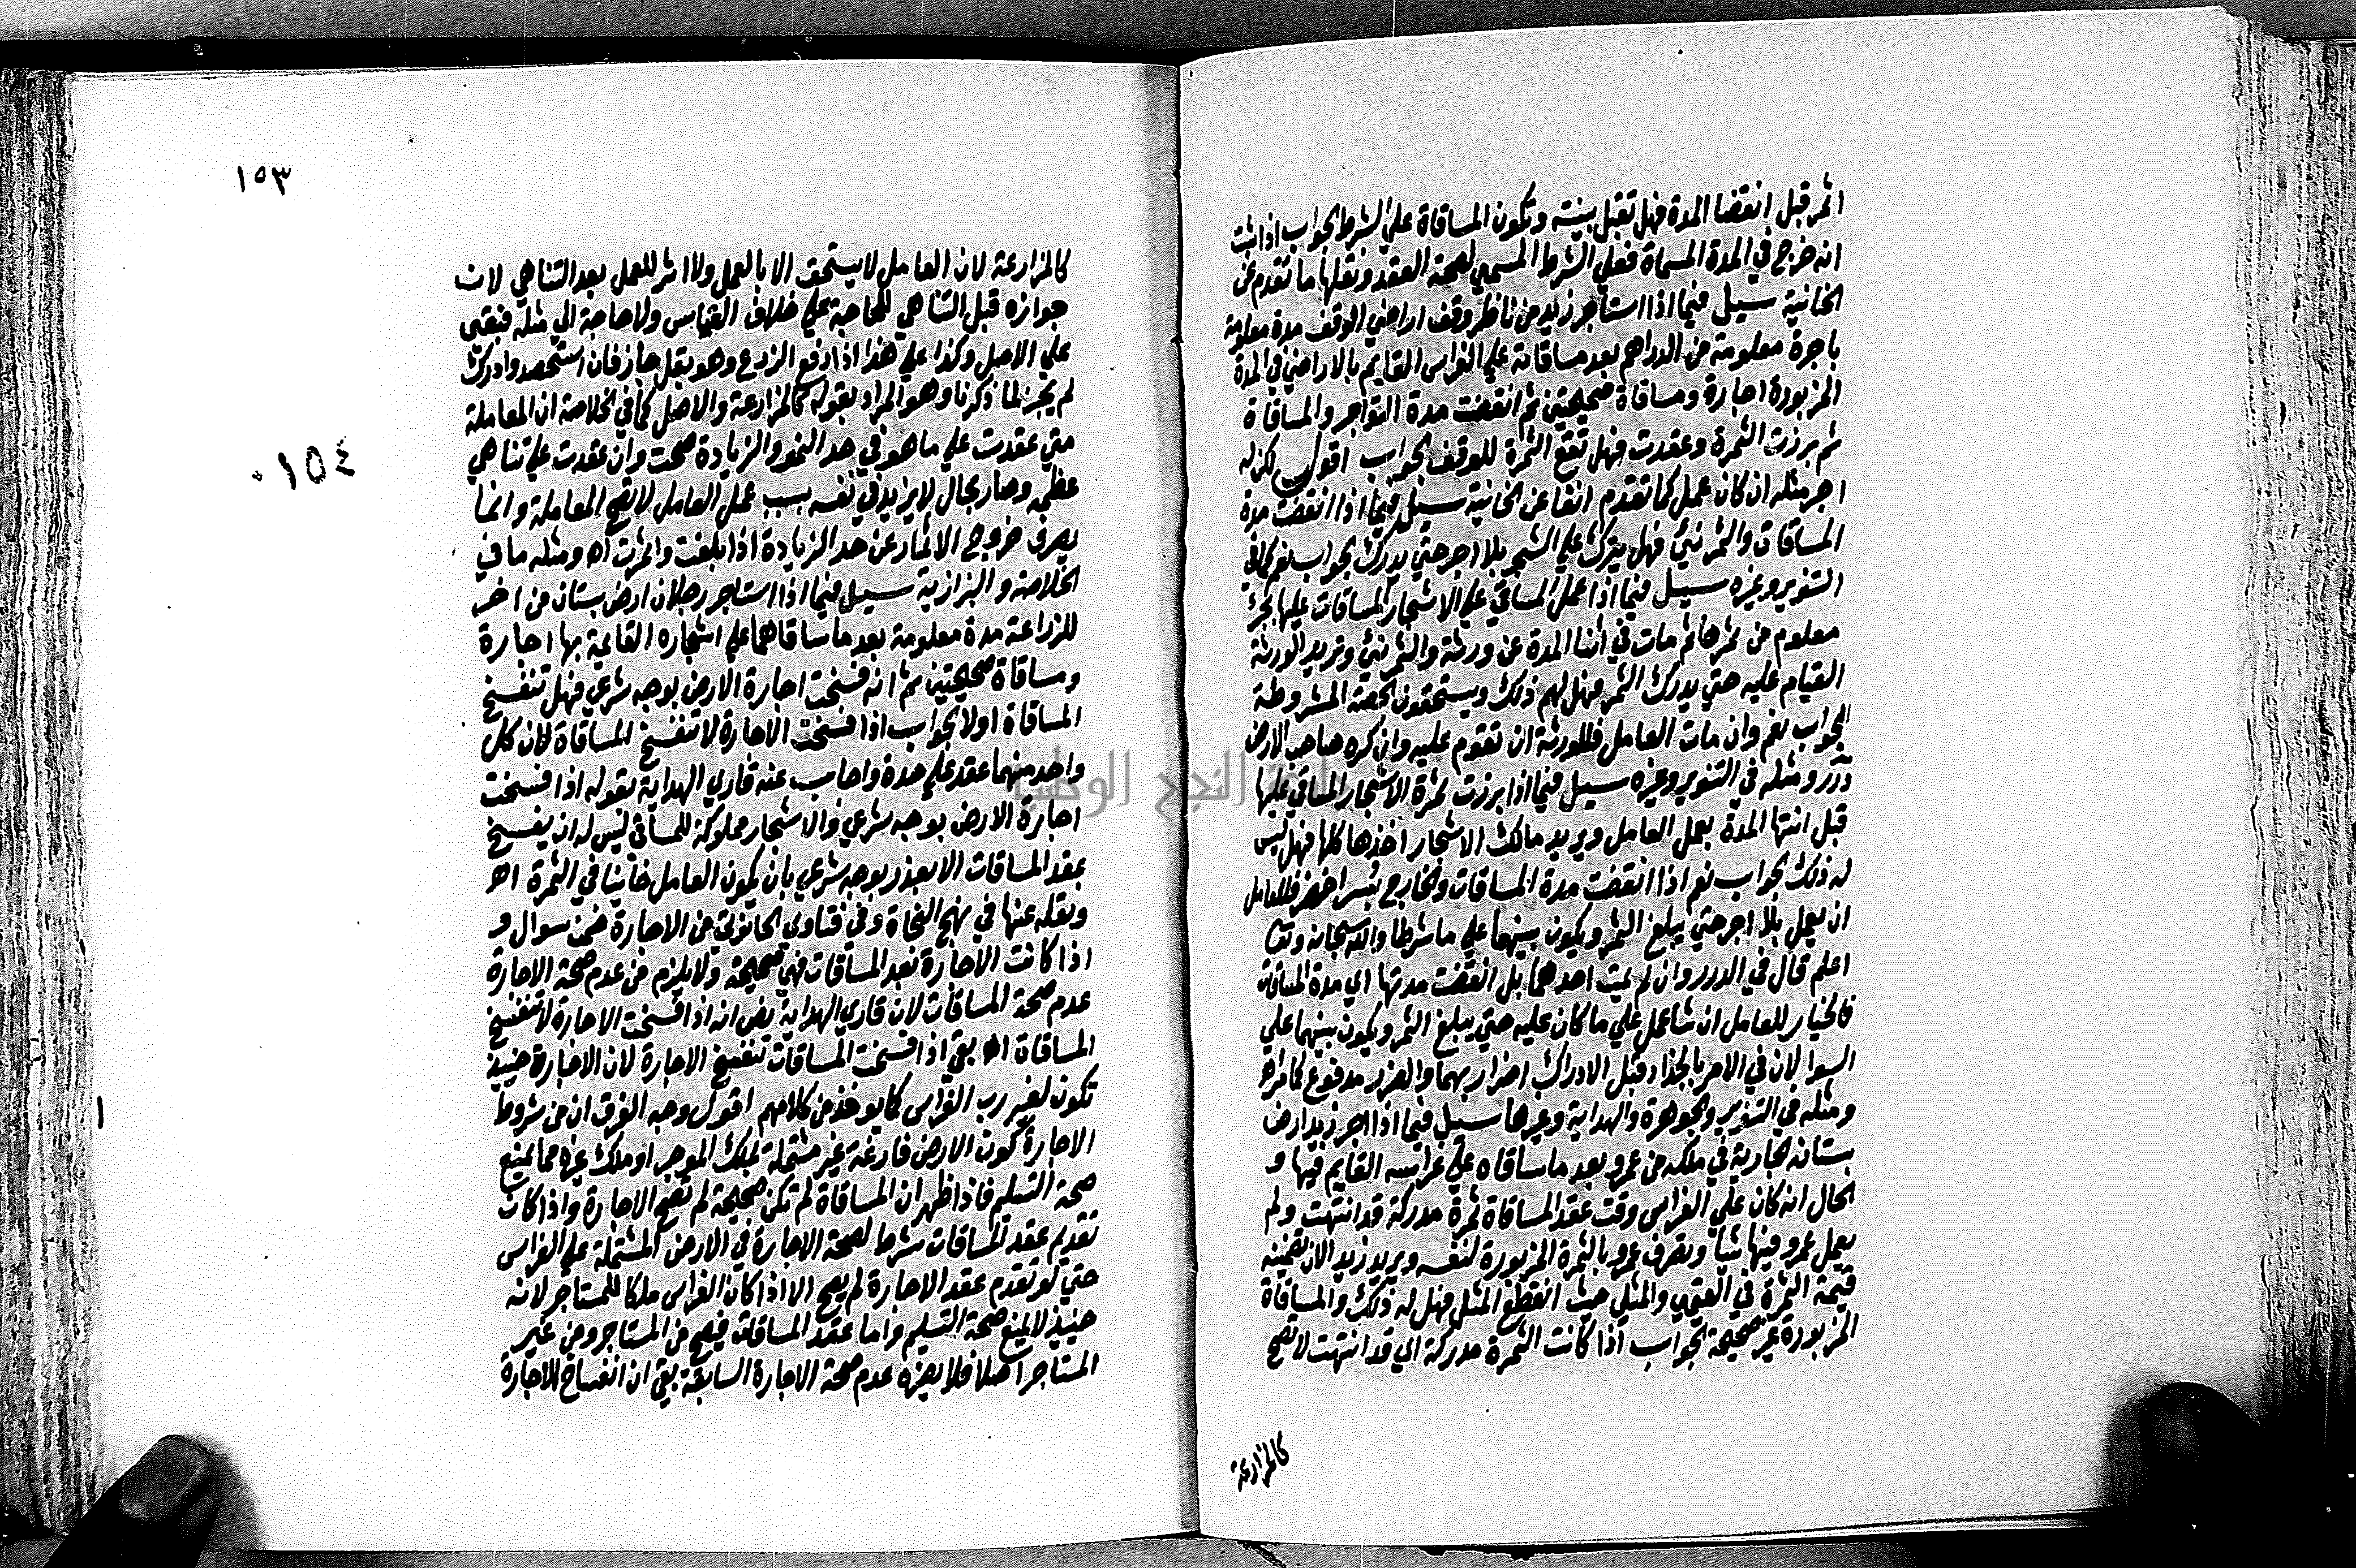 اثمر قبل انقضا المدة فهل تقبل بينته وتكون المساقاة علي الشرط الجواب اذا ثبت
انه خرج في المدة المسماة فعلي الشرط المسمي لصحة العقد ونقلها ما تقدم عن
الخانية سيل فيما اذا استاجر زيد من ناظر وقف اراضي الوقف مدة معلومة
باجرة معلومة من الدراهم بعد مساقاته علي الغراس القايم بالاراضي في المدة
المزبورة اجارة ومساقاة صحيحتين ثم انقضت مدة التواجر والمساقاة
ثم برزت الثمرة وعقدت فهل تقع الثمرة للوقف الجواب اقول لكن له
اجر مثله ان كان عمل كما تقدم انفا عن الخانية سيل فيما اذا انقضت مدة
المساقات والثمر نيئ فهل يترك علي الشجر بلا اجر حتي يدرك الجواب نعم كما في
التنوير وغيره سيل فيما اذا عمل المساقي علي الاشجار المساقات عليها بجزئ
معلوم من ثمرها ثم مات في اثنا المدة عن ورثة والثمر نيئ وتريد الورثة
القيام عليه حتي يدرك الثمر فهل لهم ذلك ويستحقون الحصة المشروطة
الجواب نعم وان مات العامل فللورثة ان تقوم عليه وان كره صاحب الارض
درر ومثله في التنوير وغيره سيل فيما اذا برزت ثمرة الاشجار المساقي عليها
قبل انتها المدة بعمل العامل ويريد مالك الاشجار اخذها كلها فهل ليس
له ذلك الجواب نعم اذا انقضت مدة المساقات والخارج بسر اخضر فللعامل
ان يعمل بلا اجر حتي يبلغ الثمر ويكون بينهما علي ما شرطا والله سبحانه وتعا
اعلم قال في الدرر وان لم يمت احدهما بل انقضت مدتها اي مدة المساقاة
فالخيار للعامل ان شا عمل علي ما كان عليه حتي يبلغ الثمر ويكون بينهما علي
السوا لان في الامر بالجذاذ قبل الادراك اضرار بهما والضرر مدفوع كما مر اه
ومثله في التنوير والجوهرة والهداية وغيرها سيل فيما اذا اجر زيد ارض
بستانه الجارية في ملكه من عمرو بعد ما ساقاه علي غراسه القايم فيها و
الحال انه كان علي الغراس وقت عقد المساقاة ثمرة مدركة قد انتهت ولم
يعمل عمرو فيها شيأ وتصرف عمرو بالثمرة المزبورة لنفسه ويريد زيد الان تضمينه
قيمة الثمرة في القيمي والمثلي حيث انقطع المثل فهل له ذلك والمساقاة
المزبورة غير صحيحة الجواب اذا كانت الثمرة مدركة اي قد انتهت لا تصح
كالمزارعة
١٥٣
١٥٤
كالمزارعة لان العامل لا يستحق الا بالعمل ولا اثر للعمل بعد التناهي لان
جوازه قبل التناهي للحاجة علي خلاف القياس ولا حاجة الي مثله فبقي
علي الاصل وكذا علي هذا اذا دفع الزرع وهو بقل جاز فان استحصد وادرك
لم يجز لما ذكرنا وهو المراد بقوله كالمزارعة والاصل كما في الخلاصة ان المعاملة
متي عقدت علي ما هو في حد النمو والزيادة صحت وان عقدت علي تناهي
عظمه وصار بحال لا يزيد في نفسه بسبب عمل العامل لا تصح المعاملة وانما
يعرف خروج الاثمار عن حد الزيادة اذا بلغت واثمرت اه ومثله ما في
الخلاصة والبزازية سيل فيما اذا استاجر رجلان ارض بستان من اخر
للزراعة مدة معلومة بعد ما ساقاهما علي اشجاره القايمة بها اجارة
ومساقاة صحيحتين ثم انه فسخت اجارة الارض بوجه شرعي فهل تنفسخ
المساقاة اولا الجواب اذا فسخت الاجارة لا تنفسخ المساقاة لان كل
واحد منهما عقد علي حدة واجاب عنه قاري الهداية بقوله اذا فسخت
اجارة الارض بوجه شرعي والاشجار مملوكة للمساقي ليس له ان يفسخ
عقد المساقات الا بعذر بوجه شرعي بان يكون العامل خاينا في الثمرة اه
ونقله عنها في نهج النجاة وفي فتاوي الحانوتي من الاجارة ضمن سوال و
اذا كانت الاجارة بعد المساقات فهي صحيحة ولا يلزم من عدم صحة الاجارة
عدم صحة المساقات لان قاري الهداية نص انه اذا فسخت الاجارة لا تنفسخ
المساقاة اه بقي اذا فسخت المساقات تنفسخ الاجارة لان الاجارة حنيذ
تكون لغير رب الغراس كما يوخذ من كلامهم اقول وجه الفرق ان من شروط
الاجارة كون الارض فارغة غير مشتملة بملك الموجر او ملك غيره مما يمنع
صحة التسليم فاذا ظهر ان المساقاة لم تكن صحيحة لم تصح الاجارة واذا كان
تقديم عقد المساقات شرطا لصحة الاجارة في الارض المشتملة علي الغراس
حتي لو تقدم عقد الاجارة لم يصح الا اذا كان الغراس ملكا للمستاجر لانه
حنيذ لا يمنع صحة التسليم واما عقد المساقات فيصح من المستاجر ومن غير
المستاجر اصلا فلا يضره عدم صحة الاجارة السابقة بقي ان انفساخ الاجارة